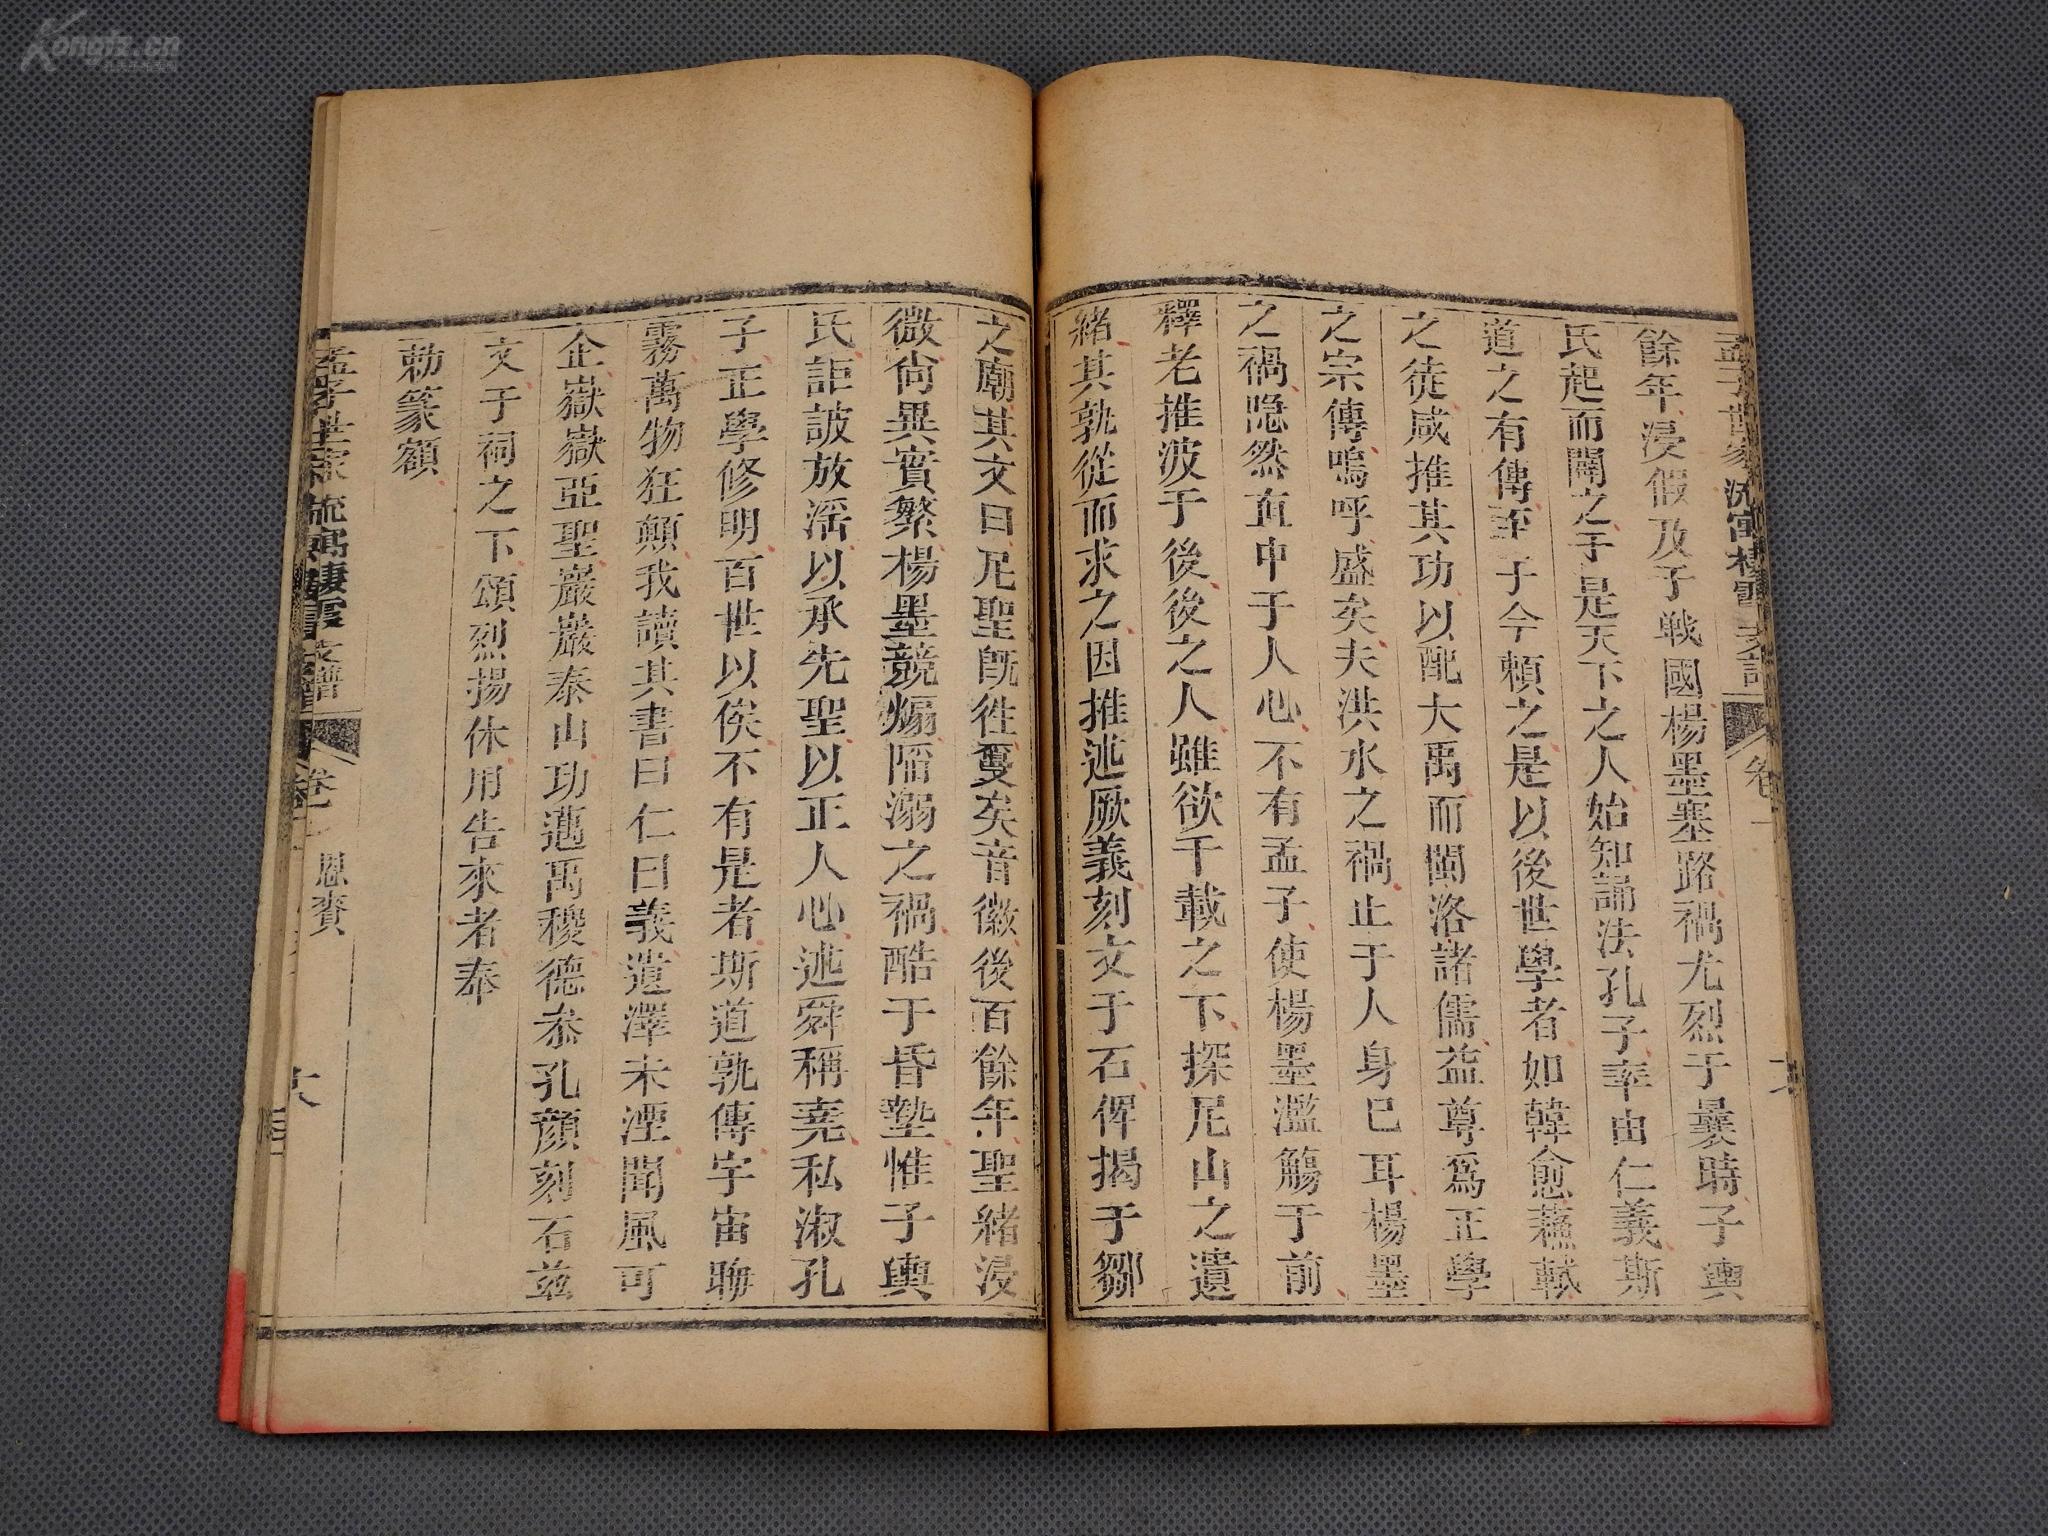 Kongfz.cn
餘年浸假及于戰國楊墨塞路禍尤烈于曩時子輿
氏起而闢之于是天下之人始知誦法孔子率由仁義斯
道之有傳至子今賴之是以後世學者如韓愈蘇軾
之徒咸推其功以配大禹而閩洛諸儒益尊爲正學
之宗傳嗚呼盛矣夫洪水之禍止于人身已耳楊墨
之禍隐然直中于人心不有孟子使楊墨濫觴于前
釋老推波于後後之人雖欲千載之下探尼山之遺
緒其孰從而求之因推述厥義刻文于石俾揭于鄒
之廟其文曰尼聖旣徃敻矣音徽後百餘年聖緒浸
微尙異實繁楊墨競煽陷溺之禍酷于昏墊惟子輿
氏詎詖放淫以承先聖以正人心述舜稱堯私淑孔
子正學修明百世以俟不有是者斯道孰傳宇宙聯
霧萬物狂顛我讀其書曰仁曰義遺澤未湮聞風可
企嶽嶽亞聖巖巖泰山功邁禹稷德叅孔顏刻石茲
文于祠之下頌烈揚休用告來者奉
勅篆額
孟子世家流寓棲霞支譜
卷一
恩賚